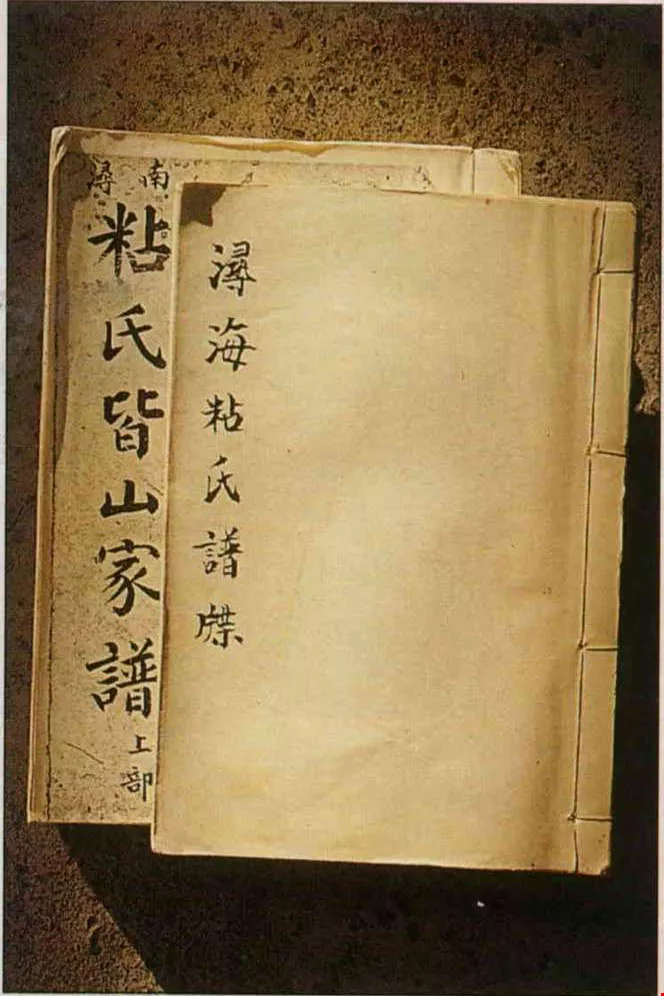 潯海粘氏譜牒
南潯
粘氏皆山家譜
上部